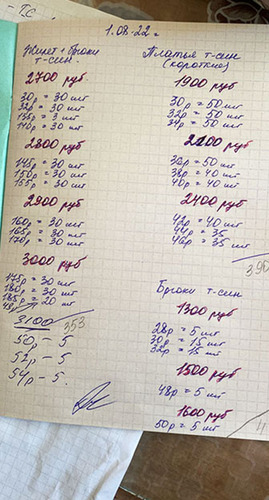 1.08.22г
Жилет + брюки
т-син.
2700 руб
30р = 30 шт
32р = 30 шт
135р = 3 шт
140р = 30 шт
2800 руб
145р = 30 шт
150р = 30 шт
155р = 30 шт
2900 руб
160р = 30 шт
165р = 30 шт
170р = 30 шт
3000 руб
175р = 30 шт
180р = 30 шт
185р = 20 шт
3100
353
50р - 5
52р - 5
54р - 5.
Платья т-син
(короткие)
1900 руб
30р = 50 шт
32р = 50 шт
34р = 50 шт
2200 руб
36р = 50 шт
38р = 40 шт
40р = 40 шт
2400 руб
42р = 40 шт
44р = 35 шт
46р = 35 шт
390
Брюки т-син
1300 руб
28р = 5 шт
30р = 15 шт
32р = 15 шт
1500 руб
48р = 5 шт
1600 руб
50р = 5 шт